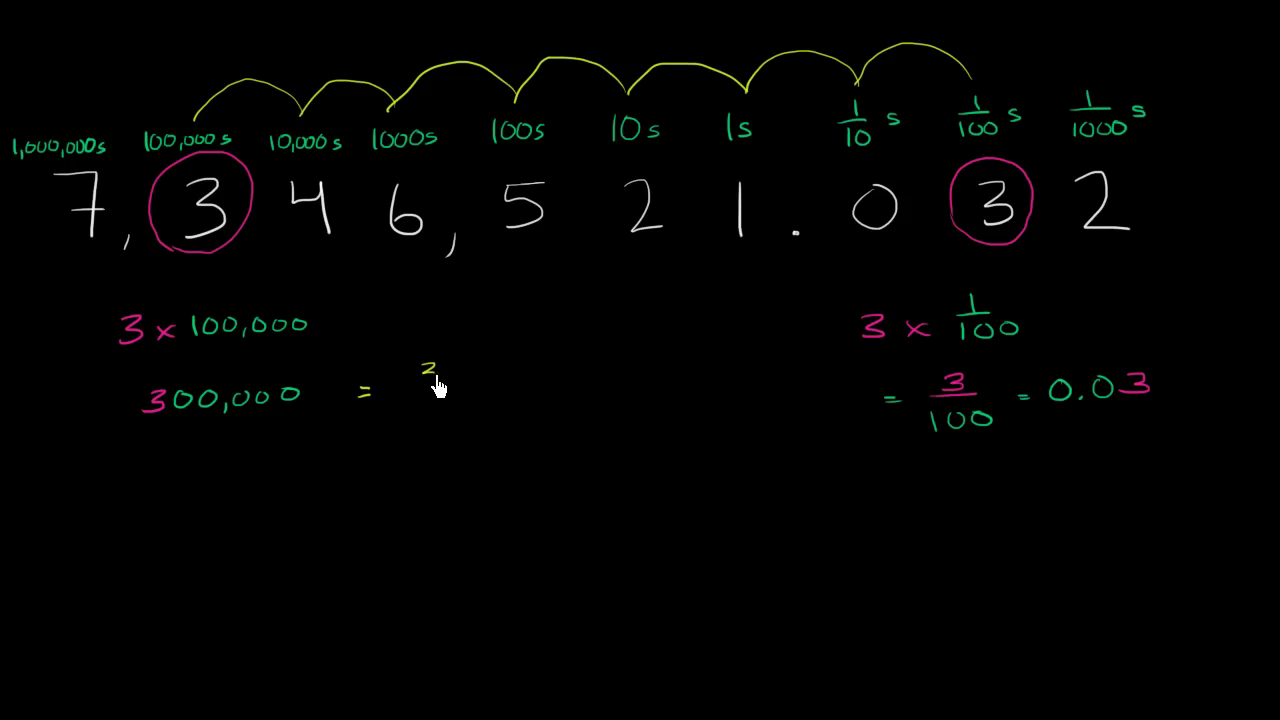 1,000,000s 100,000s 10,000s 1000s 100s 10s 1s 1/10 s 1/100 s 1/1000 s
7,346,521.032
3 × 100,000 3 × 1/100
300,000 = = 3/100 = 0.03